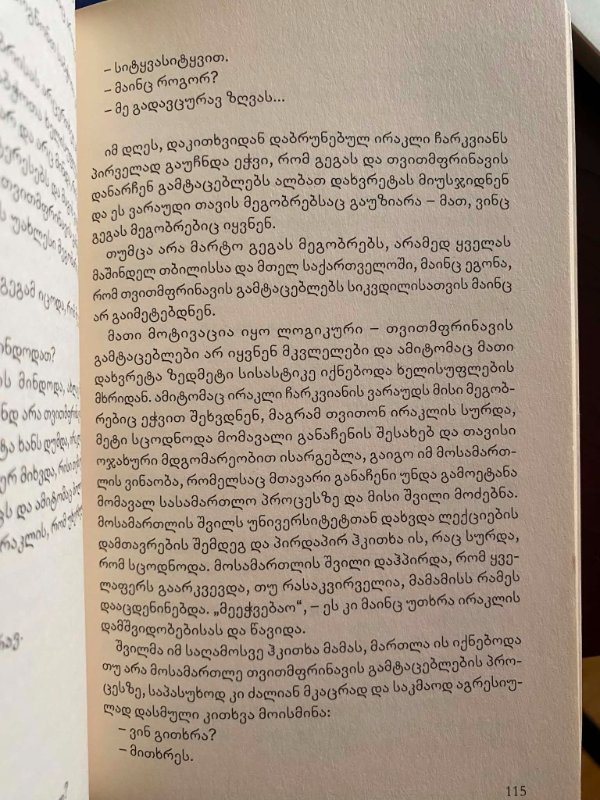 – სიტყვასიტყვით.
– მაინც როგორ?
– მე გადავცურავ ზღვას...
იმ დღეს, დაკითხვიდან დაბრუნებულ ირაკლი ჩარკვიანს
პირველად გაუჩნდა ეჭვი, რომ გეგას და თვითმფრინავის
დანარჩენ გამტაცებლებს ალბათ დახვრეტას მიუსჯიდნენ
და ეს ვარაუდი თავის მეგობრებსაც გაუზიარა – მათ, ვინც
გეგას მეგობრებიც იყვნენ.
თუმცა არა მარტო გეგას მეგობრებს, არამედ ყველას
მაშინდელ თბილისსა და მთელ საქართველოში, მაინც ეგონა,
რომ თვითმფრინავის გამტაცებლებს სიკვდილისათვის მაინც
არ გაიმეტებდნენ.
მათი მოტივაცია იყო ლოგიკური – თვითმფრინავის
გამტაცებლები არ იყვნენ მკვლელები და ამიტომაც მათი
დახვრეტა ზედმეტი სისასტიკე იქნებოდა ხელისუფლების
მხრიდან. ამიტომაც ირაკლი ჩარკვიანის ვარაუდს მისი მეგობ-
რებიც ეჭვით შეხვდნენ, მაგრამ თვითონ ირაკლის სურდა,
მეტი სცოდნოდა მომავალი განაჩენის შესახებ და თავისი
ოჯახური მდგომარეობით ისარგებლა, გაიგო იმ მოსამართ-
ლის ვინაობა, რომელსაც მთავარი განაჩენი უნდა გამოეტანა
მომავალ სასამართლო პროცესზე და მისი შვილი მოძებნა.
მოსამართლის შვილს უნივერსიტეტთან დახვდა ლექციების
დამთავრების შემდეგ და პირდაპირ ჰკითხა ის, რაც სურდა,
რომ სცოდნოდა. მოსამართლის შვილი დაჰპირდა, რომ ყვე-
ლაფერს გაარკვევდა, თუ რასაკვირველია, მამამისს რამეს
დააცდენინებდა. „მეეჭვებაო“, – ეს კი მაინც უთხრა ირაკლის
დამშვიდობებისას და წავიდა.
შვილმა იმ საღამოსვე ჰკითხა მამას, მართლა ის იქნებოდა
თუ არა მოსამართლე თვითმფრინავის გამტაცებლების პრო-
ცესზე, საპასუხოდ კი ძალიან მკაცრად და საკმაოდ აგრესიუ-
ლად დასმული კითხვა მოისმინა:
– ვინ გითხრა?
– მითხრეს.
115